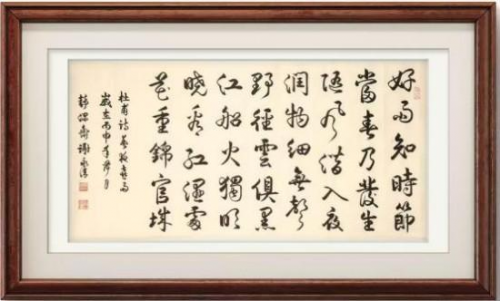 好雨知時節
當春乃發生
隨風潛入夜
潤物細無聲
野徑雲俱黑
江船火獨明
曉看紅溼處
花重錦官城
杜甫詩春夜喜雨
歲在丙申年月